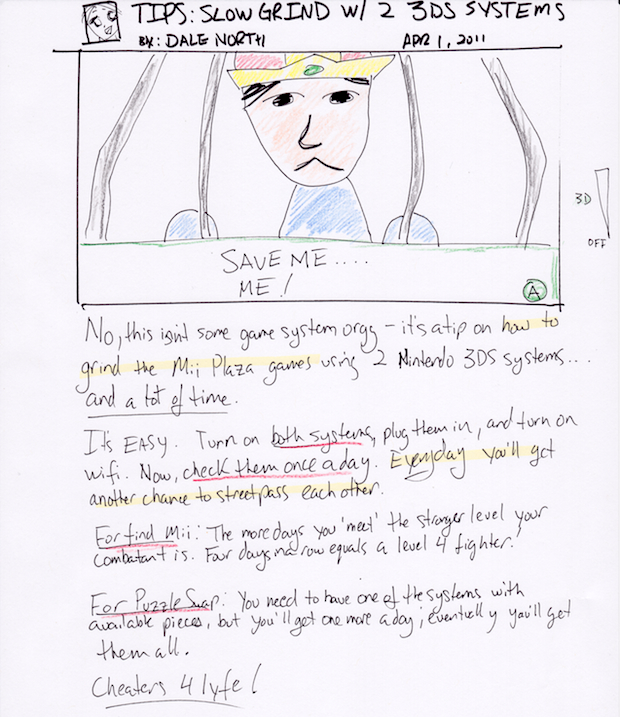 TIPS: SLOW GRIND W/ 2 3DS SYSTEMS
BY: DALE NORTH APR 1, 2011
3D
OFF
SAVE ME....
ME!
A
No, this isn't some game system orgy - it's a tip on how to
grind the Mii Plaza games using 2 Nintendo 3DS systems...
and a lot of time.
It's EASY. Turn on both systems, plug them in, and turn on
wifi. Now, check them once a day. Everyday you'll get
another chance to streetpass each other.
For find Mii: The more days you 'meet' the stronger level your
combatant is. Four days in a row equals a level 4 fighter!
For Puzzle Swap: You need to have one of the systems with
available pieces, but you'll get one more a day; eventually you'll get
them all.
Cheaters 4 lyfe!